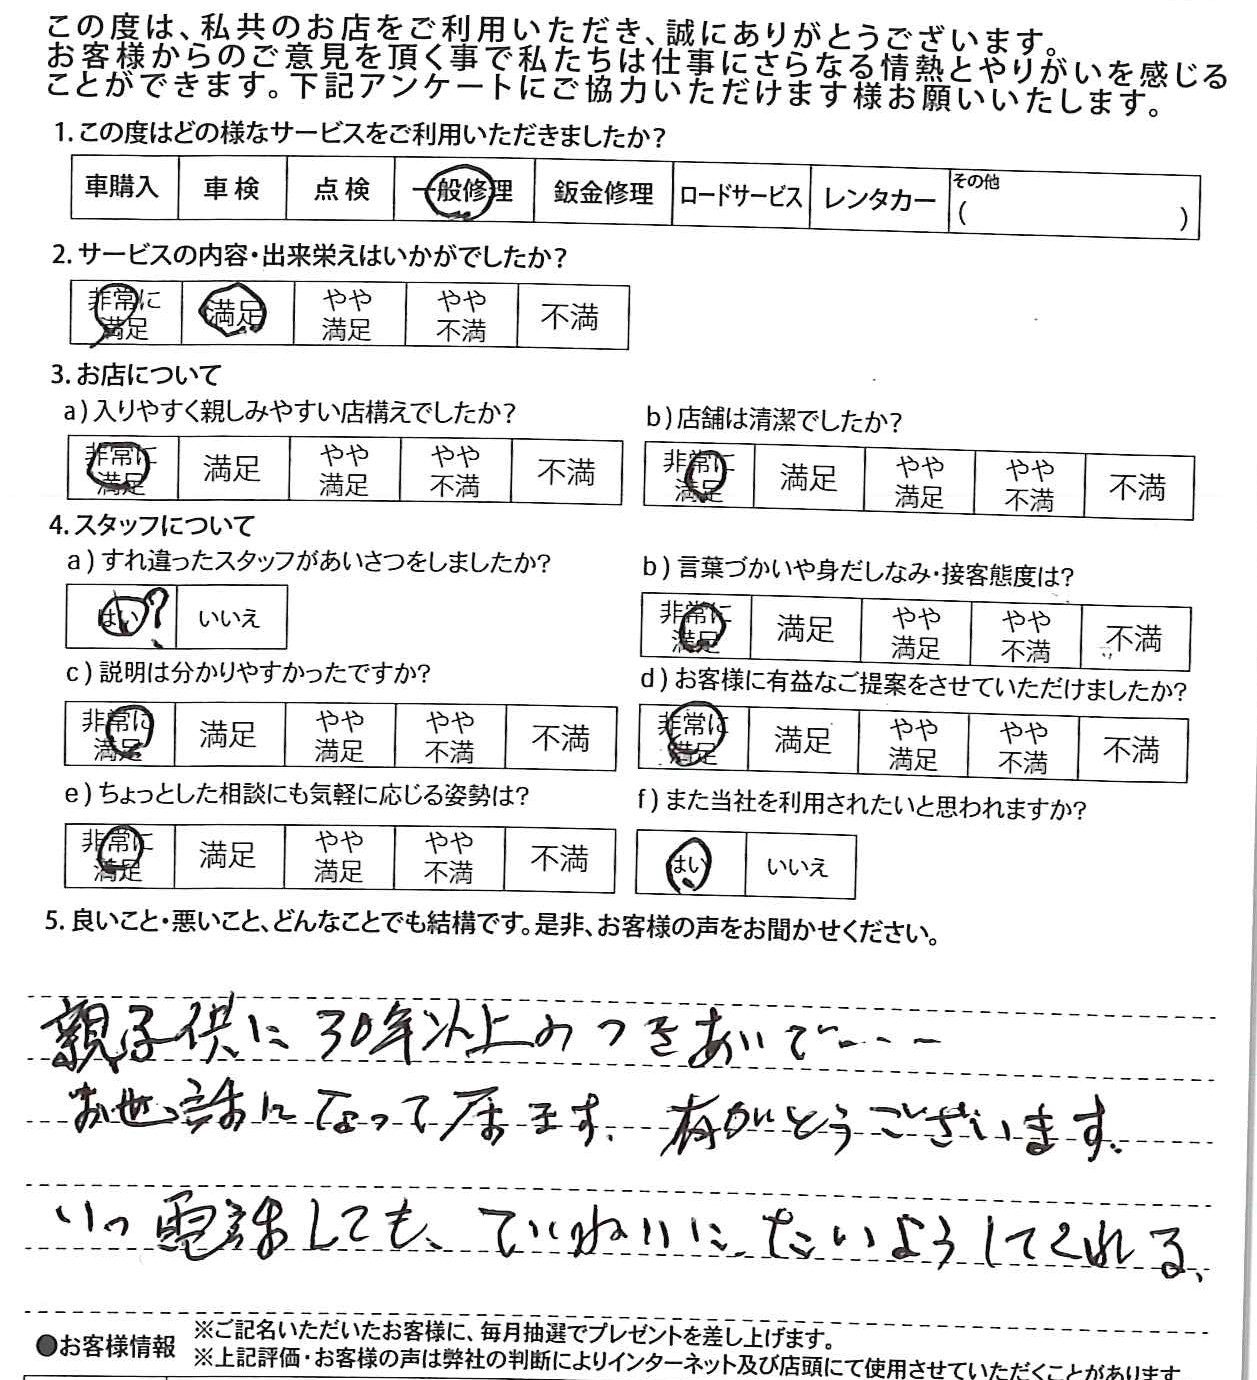 この度は、私共のお店をご利用いただき、誠にありがとうございます。
お客様からのご意見を頂く事で私たちは仕事にさらなる情熱とやりがいを感じる
ことができます。下記アンケートにご協力いただけます様お願いいたします。
1.この度はどの様なサービスをご利用いただきましたか?
車購入 車検 点検 一般修理 鈑金修理 ロードサービス レンタカー その他
( )
2.サービスの内容・出来栄えはいかがでしたか?
非常に満足 満足 やや満足 やや不満 不満
3.お店について
a)入りやすく親しみやすい店構えでしたか? b)店舗は清潔でしたか?
非常に満足 満足 やや満足 やや不満 不満 非常に満足 満足 やや満足 やや不満 不満
4.スタッフについて
a)すれ違ったスタッフがあいさつをしましたか? b)言葉づかいや身だしなみ・接客態度は?
はい ? いいえ 非常に満足 満足 やや満足 やや不満 不満
c)説明は分かりやすかったですか? d)お客様に有益なご提案をさせていただけましたか?
非常に満足 満足 やや満足 やや不満 不満 非常に満足 満足 やや満足 やや不満 不満
e)ちょっとした相談にも気軽に応じる姿勢は? f)また当社を利用されたいと思われますか?
非常に満足 満足 やや満足 やや不満 不満 はい いいえ
5.良いこと・悪いこと、どんなことでも結構です。是非、お客様の声をお聞かせください。
親子供に30年以上のつきあいで---
お世話になって居ます。有がとうございます。
いつ電話しても、ていねいにたいようしてくれる、
●お客様情報 ※ご記名いただいたお客様に、毎月抽選でプレゼントを差し上げます。
※上記評価・お客様の声は弊社の判断によりインターネット及び店頭にて使用させていただくことがあります